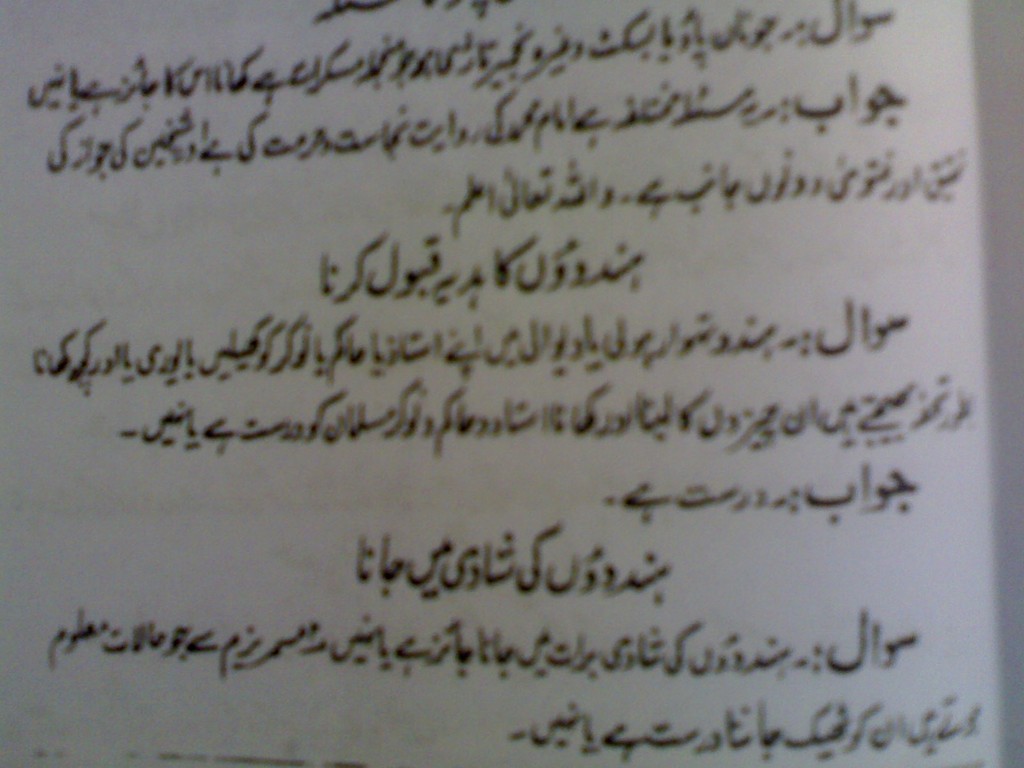 سوال:۔ جو نان پاؤ یا بسکٹ وغیرہ بخمیر تاڑی ہو جو منجملہ مسکرات ہے کھانا اس کا جائز ہے یا نہیں
جواب:۔ یہ مسئلہ مختلفہ ہے امام محمد کی روایت نجاست و حرمت کی ہے اور شیخین کی جواز کی
اور فتویٰ دونوں جانب ہے۔ واللہ تعالیٰ اعلم۔
ہندوؤں کا ہدیہ قبول کرنا
سوال:۔ ہندو تہوار ہولی یا دیوالی میں اپنے استاذ یا حاکم یا نوکر کو کھیلیں یا پوری یا اور کچھ کھانا
بطور تحفہ بھیجتے ہیں ان چیزوں کا لینا اور کھانا استاد و حاکم و نوکر مسلمان کو درست ہے یا نہیں۔
جواب:۔ درست ہے۔
ہندوؤں کی شادی میں جانا
سوال:۔ ہندوؤں کی شادی برات میں جانا جائز ہے یا نہیں مسمریزم سے جو حالات معلوم
ہوتے ہیں ان کو ٹھیک جاننا درست ہے یا نہیں۔